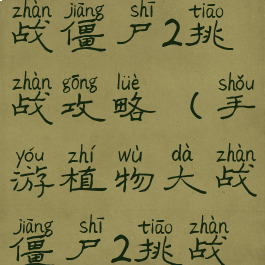 zhàn jiāng shī tiāo
战僵尸2挑
zhàn gōng lüè shǒu
战攻略（手
yóu zhí wù dà zhàn
游植物大战
jiāng shī tiāo zhàn
僵尸2挑战